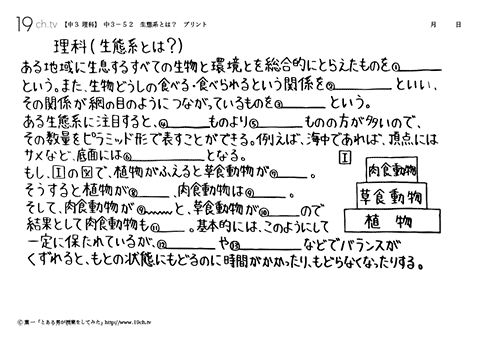 19ch.tv 【中3 理科】 中3-52 生態系とは? プリント 月 日
理科(生態系とは?)
ある地域に生息するすべての生物と環境とを総合的にとらえたものを①
という。また、生物どうしの食べる・食べられるという関係を② といい、
その関係が網の目のようにつながっているものを③ という。
ある生態系に注目すると、④ ものより⑤ ものの方が多いので、
その数量をピラミッド形で表すことができる。例えば、海中であれば、頂点には
サメなど、底面には⑥ となる。
もし、Iの図で、植物がふえると草食動物が⑦ 。
そうすると植物が⑧ 、肉食動物は⑨ 。
そして、肉食動物が⑨ と、草食動物が⑩ ので
結果として肉食動物も⑪ 。基本的には、このようにして
一定に保たれているが、⑫ や⑬ などでバランスが
くずれると、もとの状態にもどるのに時間がかかったり、もどらなくなったりする。
I
肉食動物
草食動物
植物
© 葉一「とある男が授業をしてみた」http://www.19ch.tv